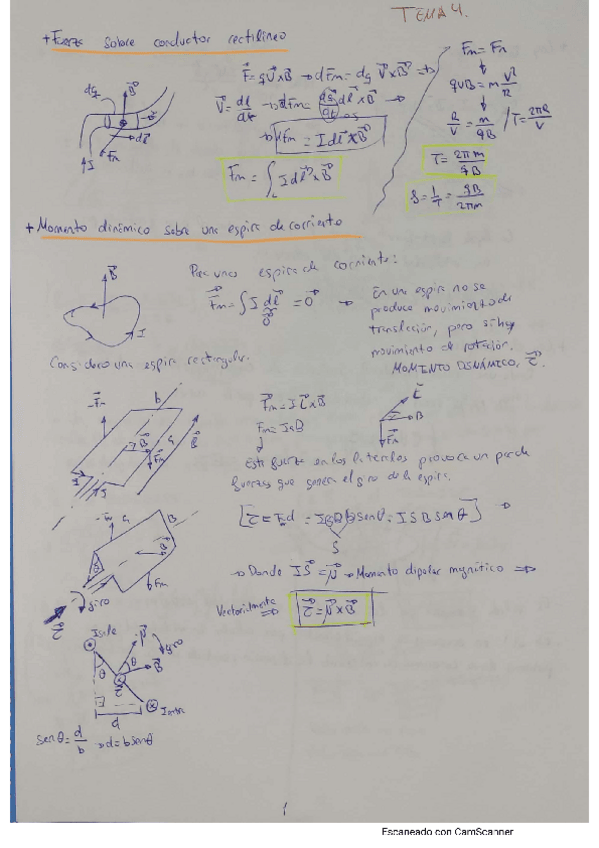 TEMA 4.
+Fuerza sobre conductor rectilíneo
F⃗=qv⃗×B⃗ → dF⃗m=dq v⃗×B⃗ ⇒
v⃗=dl⃗/dt → dF⃗m=dq/dt dl⃗×B⃗ →
dF⃗m = I dl⃗×B⃗
F⃗m = ∫_L I dl⃗×B⃗
dq B⃗
dl⃗
I F⃗m
Fm = Fn
qvB = m v²/R
R/v = m/qB / T = 2πR/v
T = 2πm/qB
f = 1/T = qB/2πm
+Momento dinámico sobre una espira de corriente
Para una espira de corriente:
F⃗m = ∫ I dl⃗ = 0⃗ →
0⃗
En una espira no se
produce movimiento de
translación, pero si hay
movimiento de rotación.
MOMENTO DINÁMICO, τ⃗.
B⃗
I
Considero una espira rectangular.
-F⃗m b
B⃗ a B⃗
F⃗m
I I
F⃗m = I L⃗×B⃗
Fm = IaB
τ⃗
B
F⃗m
Esta fuerza en los laterales provoca un par de
fuerzas que genera el giro de la espira.
[τ = Fm d = IBab senθ = ISB senθ] ⇒
S
→ Donde IS⃗ = μ⃗ → Momento dipolar magnético ⇒
Vectorialmente ⇒ τ⃗ = μ⃗×B⃗
-Fm a B
B⃗
Fm
giro
τ⃗
I sale
μ⃗ giro
θ θ B⃗
τ⃗
I entra
d
senθ = d/b → d = b senθ
1
Escaneado con CamScanner